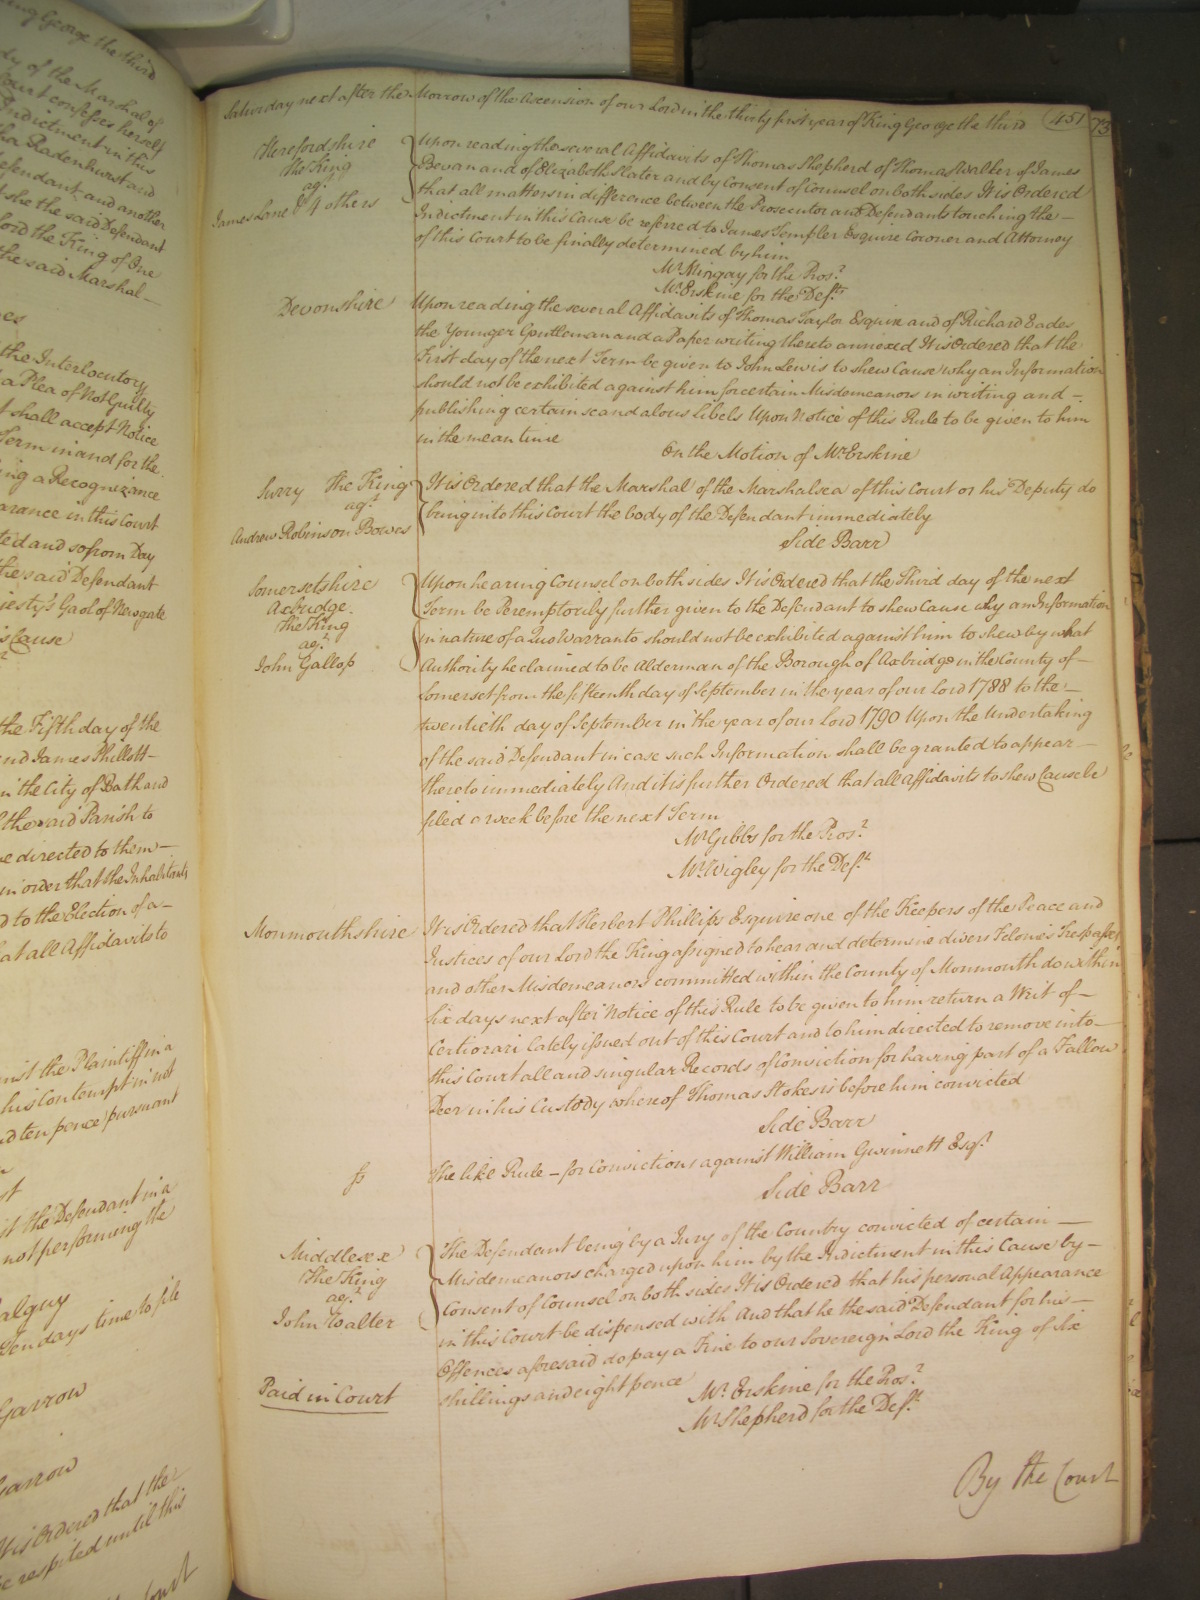 ing George the third
dy of the Marshal of
Court confesses herself
Indictment in this
tha Radenhurst and
efendant and another
t she the said Defendant
lord the King of One
the said Marshal —
the Interlocutory
a Plea of Not Guilty
t shall accept Notice
Term in and for the
ing a Recognizance
arance in this Court
ted and so from Day
the said Defendant
jesty's Gaol of Newgate
is Cause
the Fifth day of the
and James Phillott
n the City of Bath and
f the said Parish to
e directed to them —
in order that the Inhabitants
d to the Election of a —
hat all Affidavits to
inst the Plaintiff in a
his Contempt in not
d ten pence pursuant
st the Defendant in a
not performing the
algny
Ten days time to file
Garrow
Garrow
It is Ordered that the
be respited until this
Court
Saturday next after the Morrow of the Ascension of our Lord in the thirty first year of King George the third 451 73
Herefordshire
The King
agt
James Lane & 4 others
Upon reading the several Affidavits of Thomas Shepherd of Thomas Walker of James
Bevan and of Elizabeth Slater and by Consent of Counsel on both sides It is Ordered
that all matters in difference between the Prosecutor and Defendants touching the —
Indictment in this Cause be referred to James Templer Esquire Coroner and Attorney
of this Court to be finally determined by him
Mr Mingay for the Pros.r
Mr Erskine for the Def.ts
Devonshire
Upon reading the several Affidavits of Thomas Taylor Esquire and of Richard Eades
the Younger Gentleman and a Paper writing thereto annexed It is Ordered that the
First day of the next Term be given to John Lewis to shew Cause why an Information
should not be exhibited against him for certain Misdemeanors in writing and —
publishing certain scandalous libels Upon Notice of this Rule to be given to him
in the mean time
On the Motion of Mr Erskine
Surry The King
agt
Andrew Robinson Bowes
It is Ordered that the Marshal of the Marshalsea of this Court or his Deputy do
bring into this Court the body of the Defendant immediately
Side Barr
Somersetshire
Axbridge.
The King
agt
John Gallop
Upon hearing Counsel on both sides It is Ordered that the Third day of the next
Term be Peremptorily further given to the Defendant to shew Cause why an Information
in nature of a Quo Warranto should not be exhibited against him to shew by what
Authority he claimed to be Alderman of the Borough of Axbridge in the County of —
Somerset from the fifteenth day of September in the year of our Lord 1788 to the —
twentieth day of September in the year of our Lord 1790 Upon the Undertaking
of the said Defendant in case such Information shall be granted to appear —
thereto immediately And it is further Ordered that all Affidavits to shew Cause be
filed a week before the next Term
Mr Gibbs for the Pros.r
Mr Wigley for the Def.t
Monmouthshire
It is Ordered that Herbert Phillips Esquire one of the Keepers of the Peace and
Justices of our Lord the King assigned to hear and determine divers Felonies Trespasses
and other Misdemeanors committed within the County of Monmouth do within
Six days next after Notice of this Rule to be given to him return a Writ of —
Certiorari lately issued out of this Court and to him directed to remove into —
this Court all and singular Records of Conviction for having part of a Fallow
Deer in his Custody whereof Thomas Stokes is before him convicted
Side Barr
The like Rule — for Convictions against William Gwinnett Esq.r
Side Barr
Middlesex
The King
agt
John Walter
Paid in Court
The Defendant being by a Jury of the Country convicted of certain —
Misdemeanors charged upon him by the Indictment in this Cause by —
Consent of Counsel on both sides It is Ordered that his personal Appearance
in this Court be dispensed with And that he the said Defendant for his —
Offences aforesaid do pay a Fine to our Sovereign Lord the King of Six
shillings and eight pence
Mr Erskine for the Pros.r
Mr Shepherd for the Def.t
By the Court